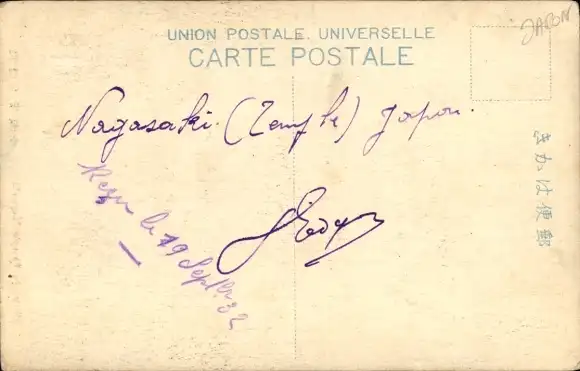 UNION POSTALE UNIVERSELLE
CARTE POSTALE
JAPON
Nagasaki (Temple) Japon.
きかは便郵
Reçu le 19 Septbr. 32